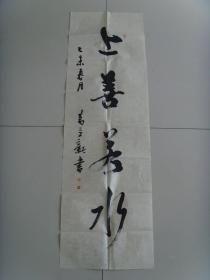 上善若水
乙未春月
书